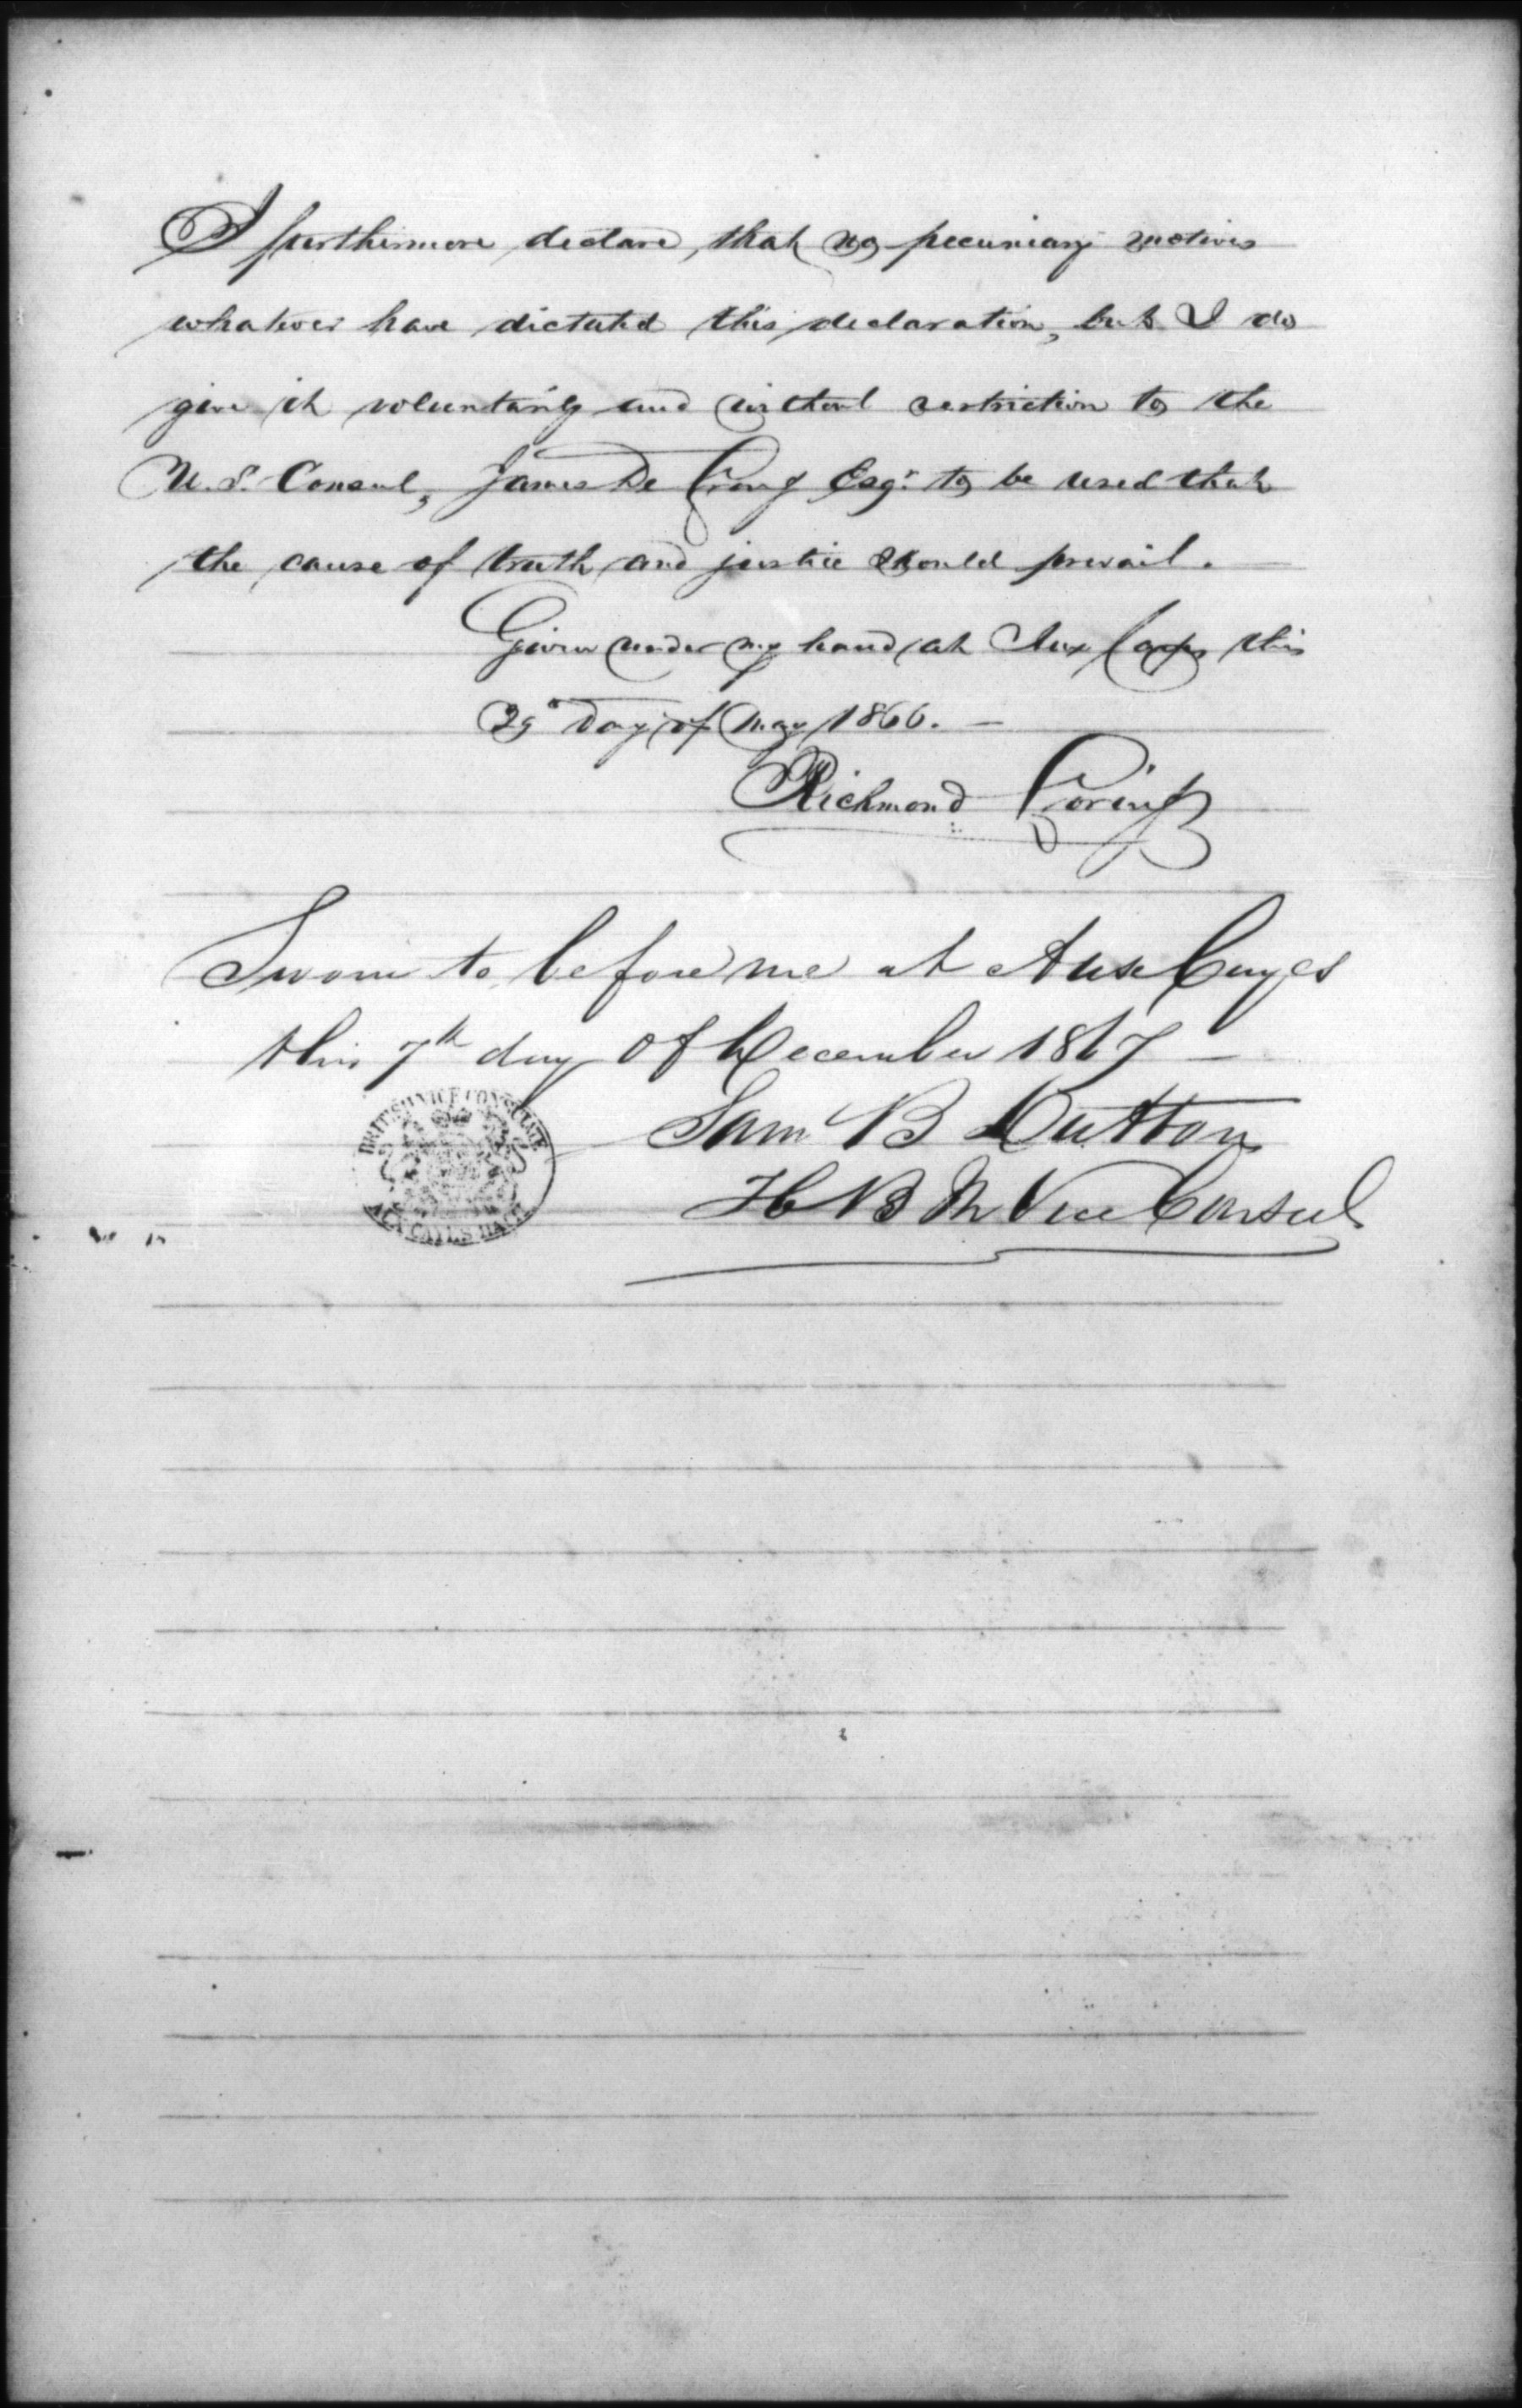 I furthermore declare, that no pecuniary motives
whatever have dictated this declaration, but I do
give it voluntarily and without restriction to the
U. S. Consul, James De Long Esqr. to be used that
the cause of truth and justice should prevail.
Given under my hand at Aux Cayes this
29th Day of May 1866.
Richmond Loring
Sworn to before me at Aux Cayes
this 7th day of December 1867
Sam B Dutton
H B M Vice Consul
BRITISH VICE CONSULATE
AUX CAYES HAYTI